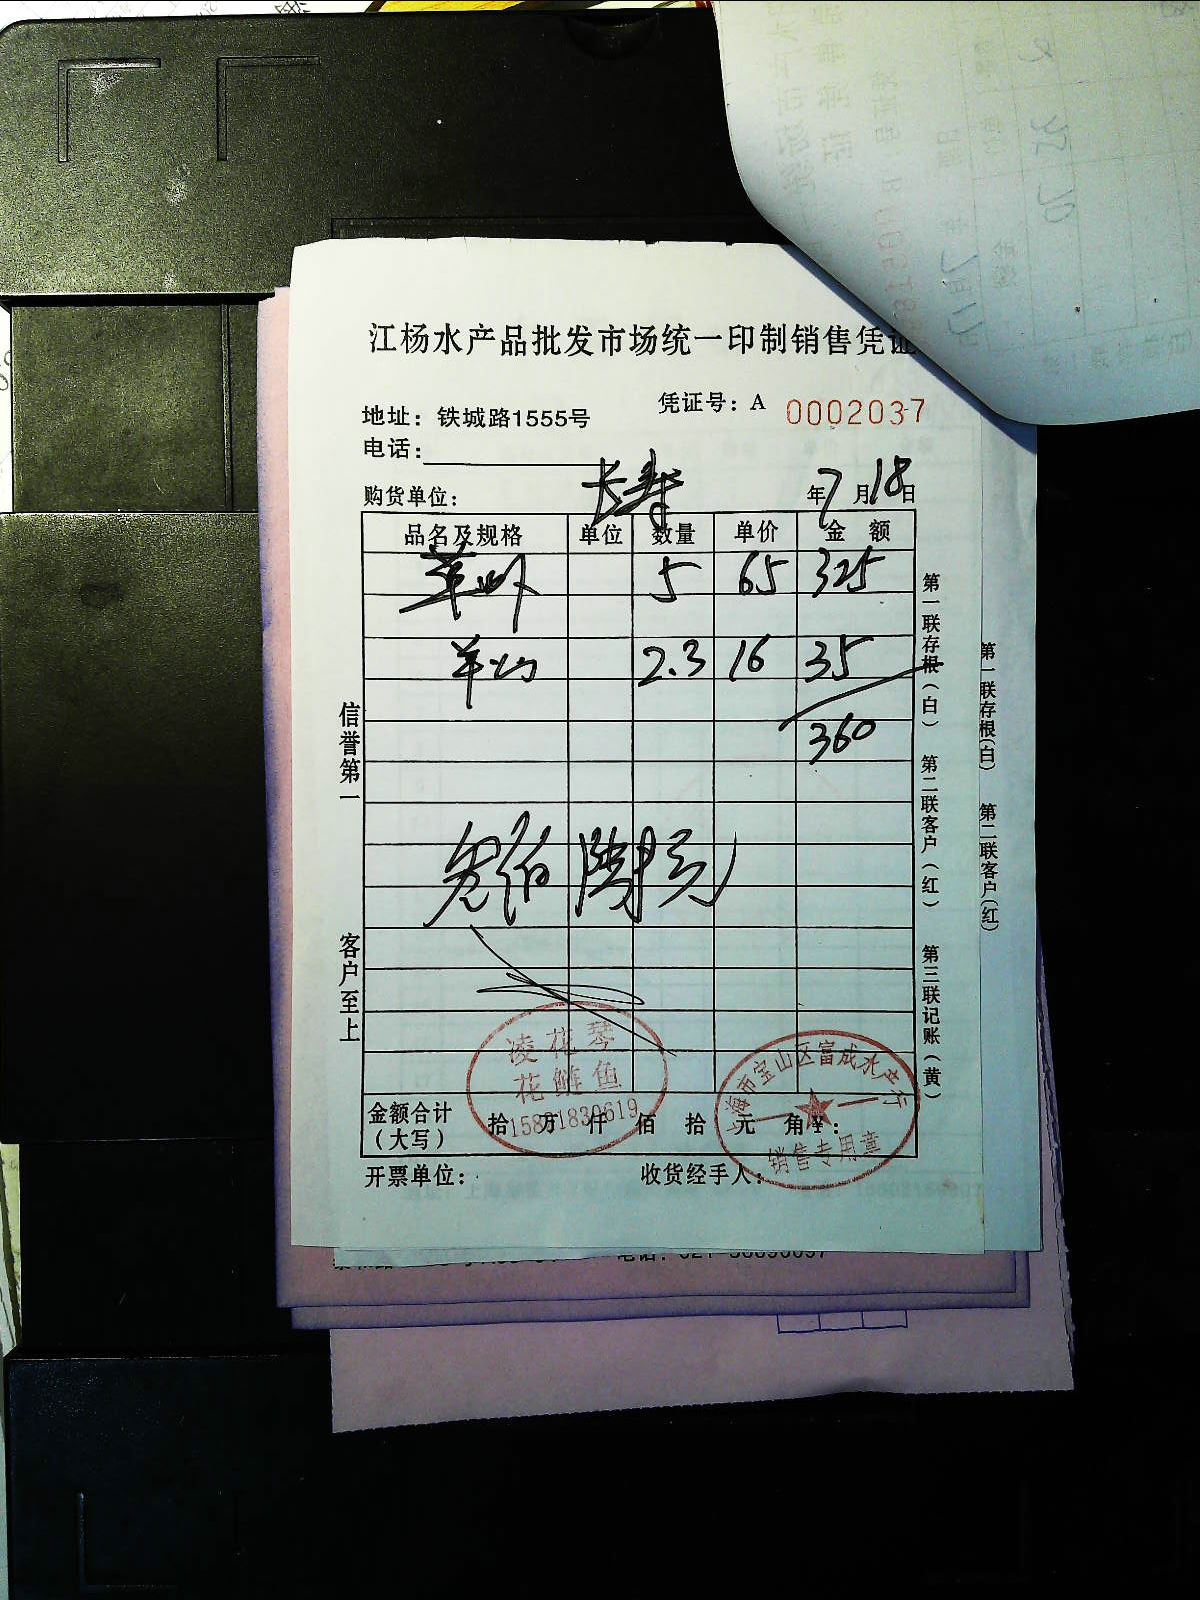 江杨水产品批发市场统一印制销售凭证
地址：铁城路1555号
凭证号：A 0002037
电话：
购货单位：长寿
年7月18日
品名及规格 单位 数量 单价 金额
草虾 5 65 325
2.3 16 35
360
信誉第一
客户至上
第一联存根（白）
第二联客户（红）
第三联记账（黄）
第一联存根（白）
第二联客户（红）
凌花琴
花鲢鱼
上海市宝山区富成水产行
销售专用章
金额合计（大写） 拾 万 仟 佰 拾 元 角 ¥：
开票单位：
收货经手人：